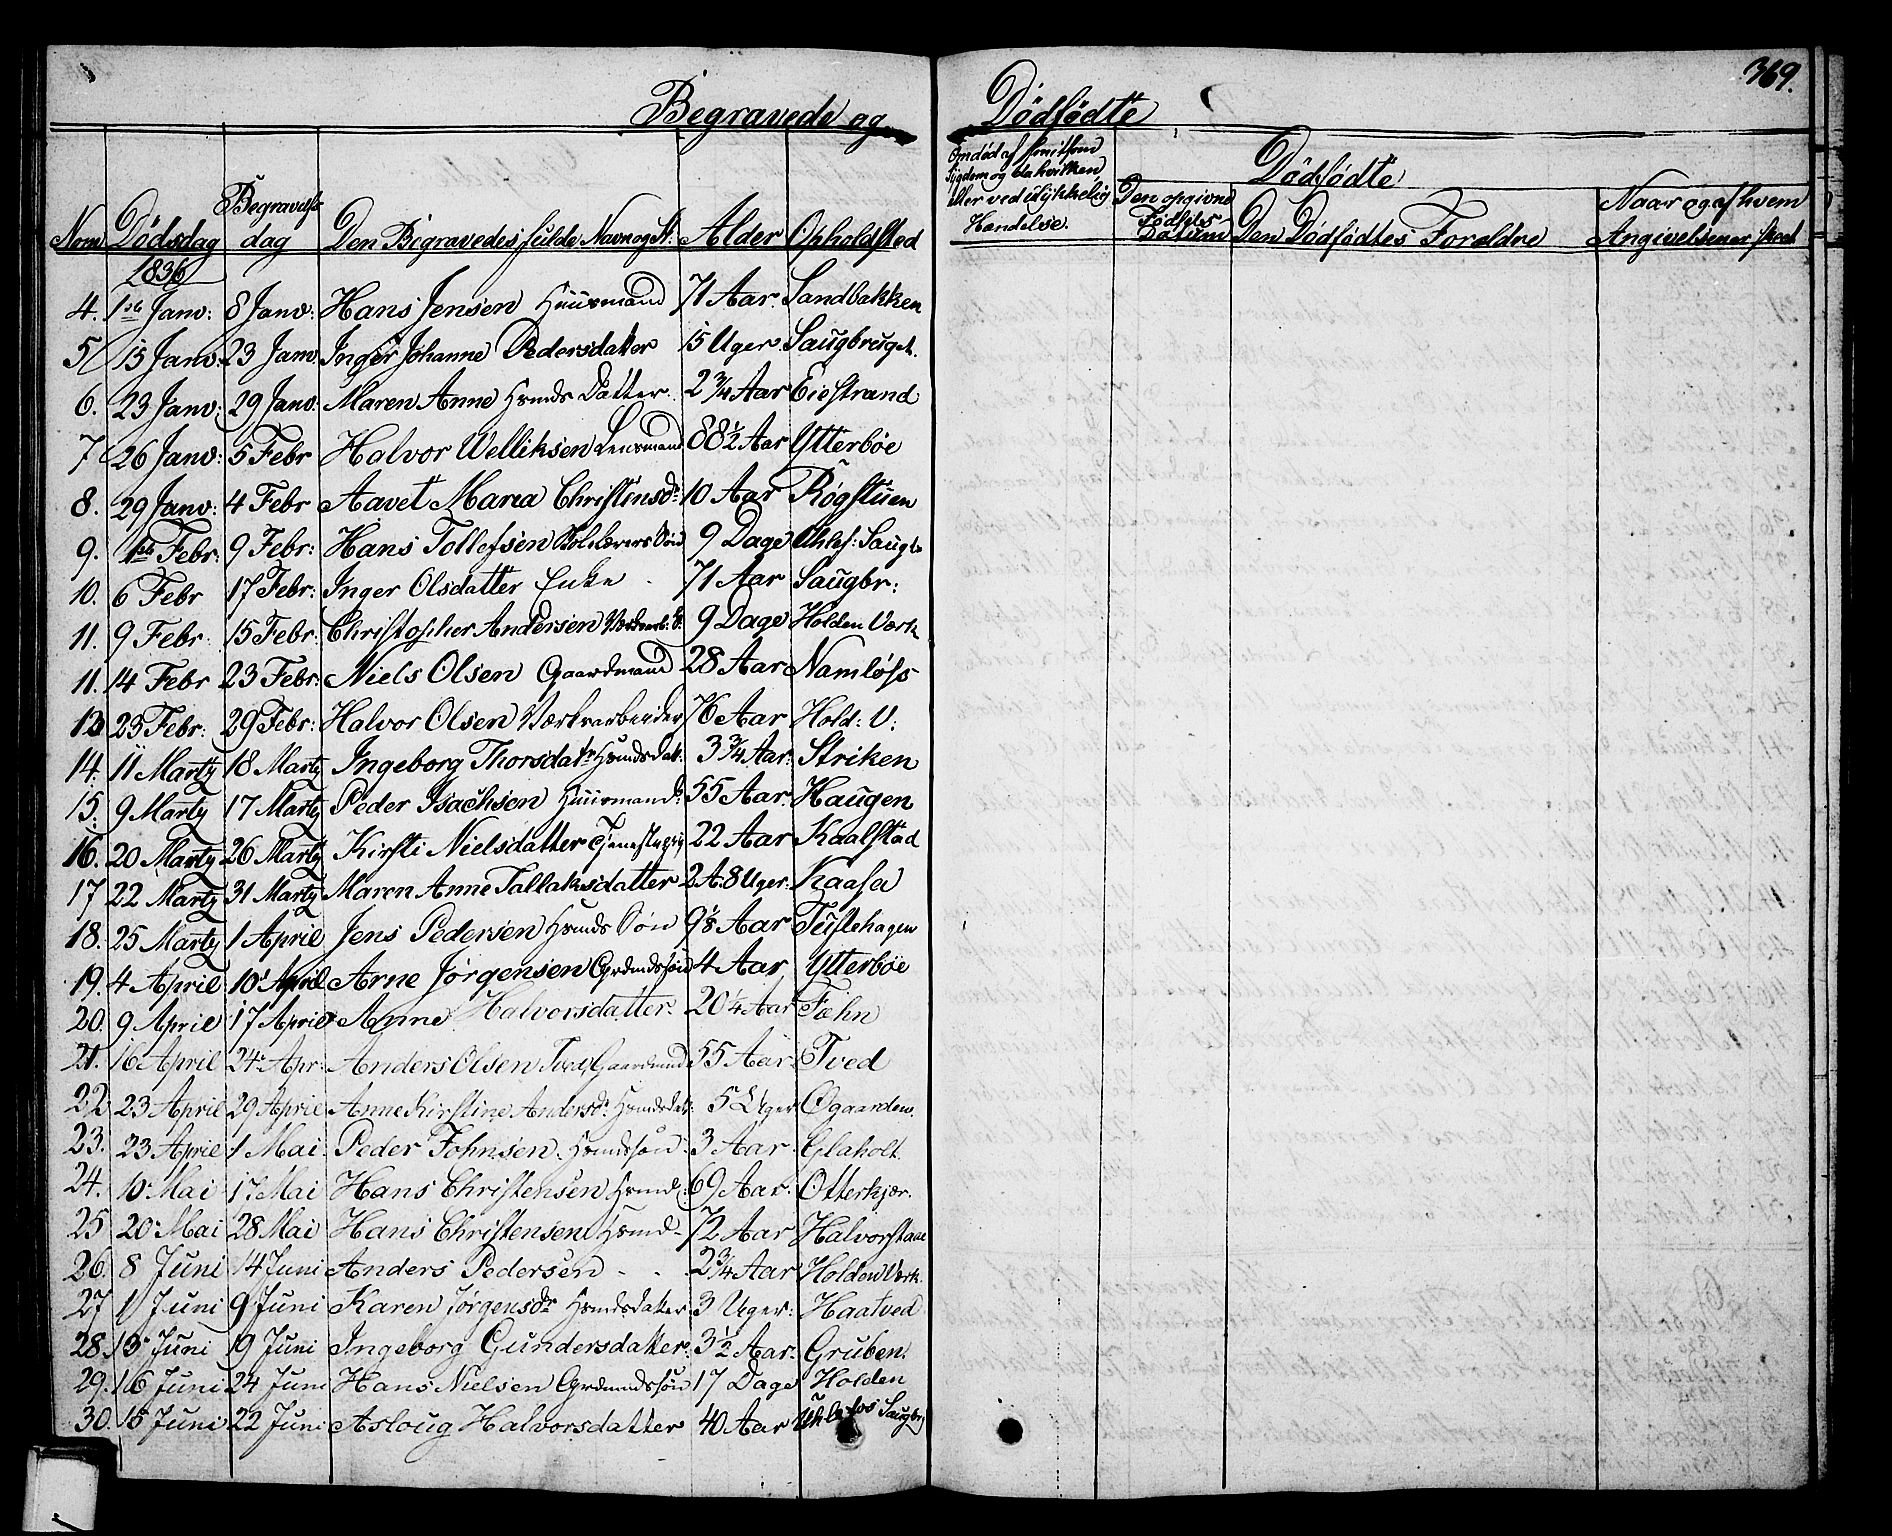 369.
Begravede og Dødfødte
Om død af smitsom
Sygdom og da hvilken,
eller ved ulykkelig
Hændelse.
Dødfødte
Nom Dødsdag Begravelses dag Den Begravedes fulde Navn og St: Alder Opholdsted
Den opgivne Fødsels Datum Den Dødfødtes Forældre Naar og af hvem Angivelsen er skeet
1836
4. 1ste Janv: 8 Janv: Hans Jensen Huusmand 71 Aar Sandbakken
5 15 Janv: 23 Janv Inger Johanne Pedersdatter 15 Uger Saugbruget.
6. 23 Janv: 29 Janv: Maren Anne Hsmds Datter. 2 3/4 Aar Eiestrand
7 26 Janv: 5 Febr Halvor Welliksen Lensmand 88 1/2 Aar Ytterbøe
8. 29 Janv: 4 Febr Aavet Maria Christensdr 10 Aar Røgstuen
9. 1ste Febr: 9 Febr: Hans Tollefsen Skolelærers Søn 9 Dage Uhlef: Saugb
10. 6 Febr 17 Febr: Inger Olsdatter Enke 71 Aar Saugbr:
11. 9 Febr 15 Febr: Christopher Andersen 9 Dage Holden Værk
11. 14 Febr 23 Febr: Niels Olsen Gaardmand 28 Aar Namløss
13 23 Febr: 29 Febr: Halvor Olsen Værksarbeider 76 Aar Hold: V:
14. 11 Marty 18 Marty Ingeborg Thorsdatr Hsmdsdat: 3 3/4 Aar: Striken
15. 9 Marty 17 Marty Peder Isachsen Huusmand 55 Aar. Haugen
16. 20 Marty 26 Marty Kirsti Nielsdatter Tjenestepig 22 Aar Kaalstad
17 22 Marty 31 Marty Maren Anne Tallaksdatter 2 A. 8 Uger: Kaasa
18. 25 Marty 1 April Jens Pedersen Hsmds Søn 9 1/8 Aar Tuftehagen
19. 4 April 10 April Arne Jørgensen Grdmdssøn 4 Aar Ytterbøe
20. 9 April 17 April Anne Halvorsdatter. 20 1/4 Aar Fæhn
21. 16 April 24 Apr: Anders Olsen Tved Gaardmand 55 Aar Tved
22 23 April 29 April Anne Kirstine Andersdr Hsmdsdatr: 5 Uger Øgaarden.
23. 23 April 1 Mai Peder Johnsen Hsmdssøn 3 Aar Glaholt.
24. 10 Mai 17 Mai Hans Christensen Hsmd: 69 Aar. Otterkjær.
25 20 Mai 28 Mai Hans Christensen Hsmd - 72 Aar Halvorstaae
26. 8 Juni 14 Juni Anders Pedersen - - 2 3/4 Aar Holden Værk
27 1 Juni 9 Juni Karen Jørgensdr Hsmdsdatter 3 Uger: Haatved
28. 13 Juni 19 Juni Ingeborg Gundersdatter. 3 1/2 Aar. Gruben.
29. 16 Juni 24 Juni Hans Nielsen Grdmdssøn 17 Dage Holden
30. 15 Juni 22 Juni Asloug Halvorsdatter 40 Aar Uhlefos Saugbr